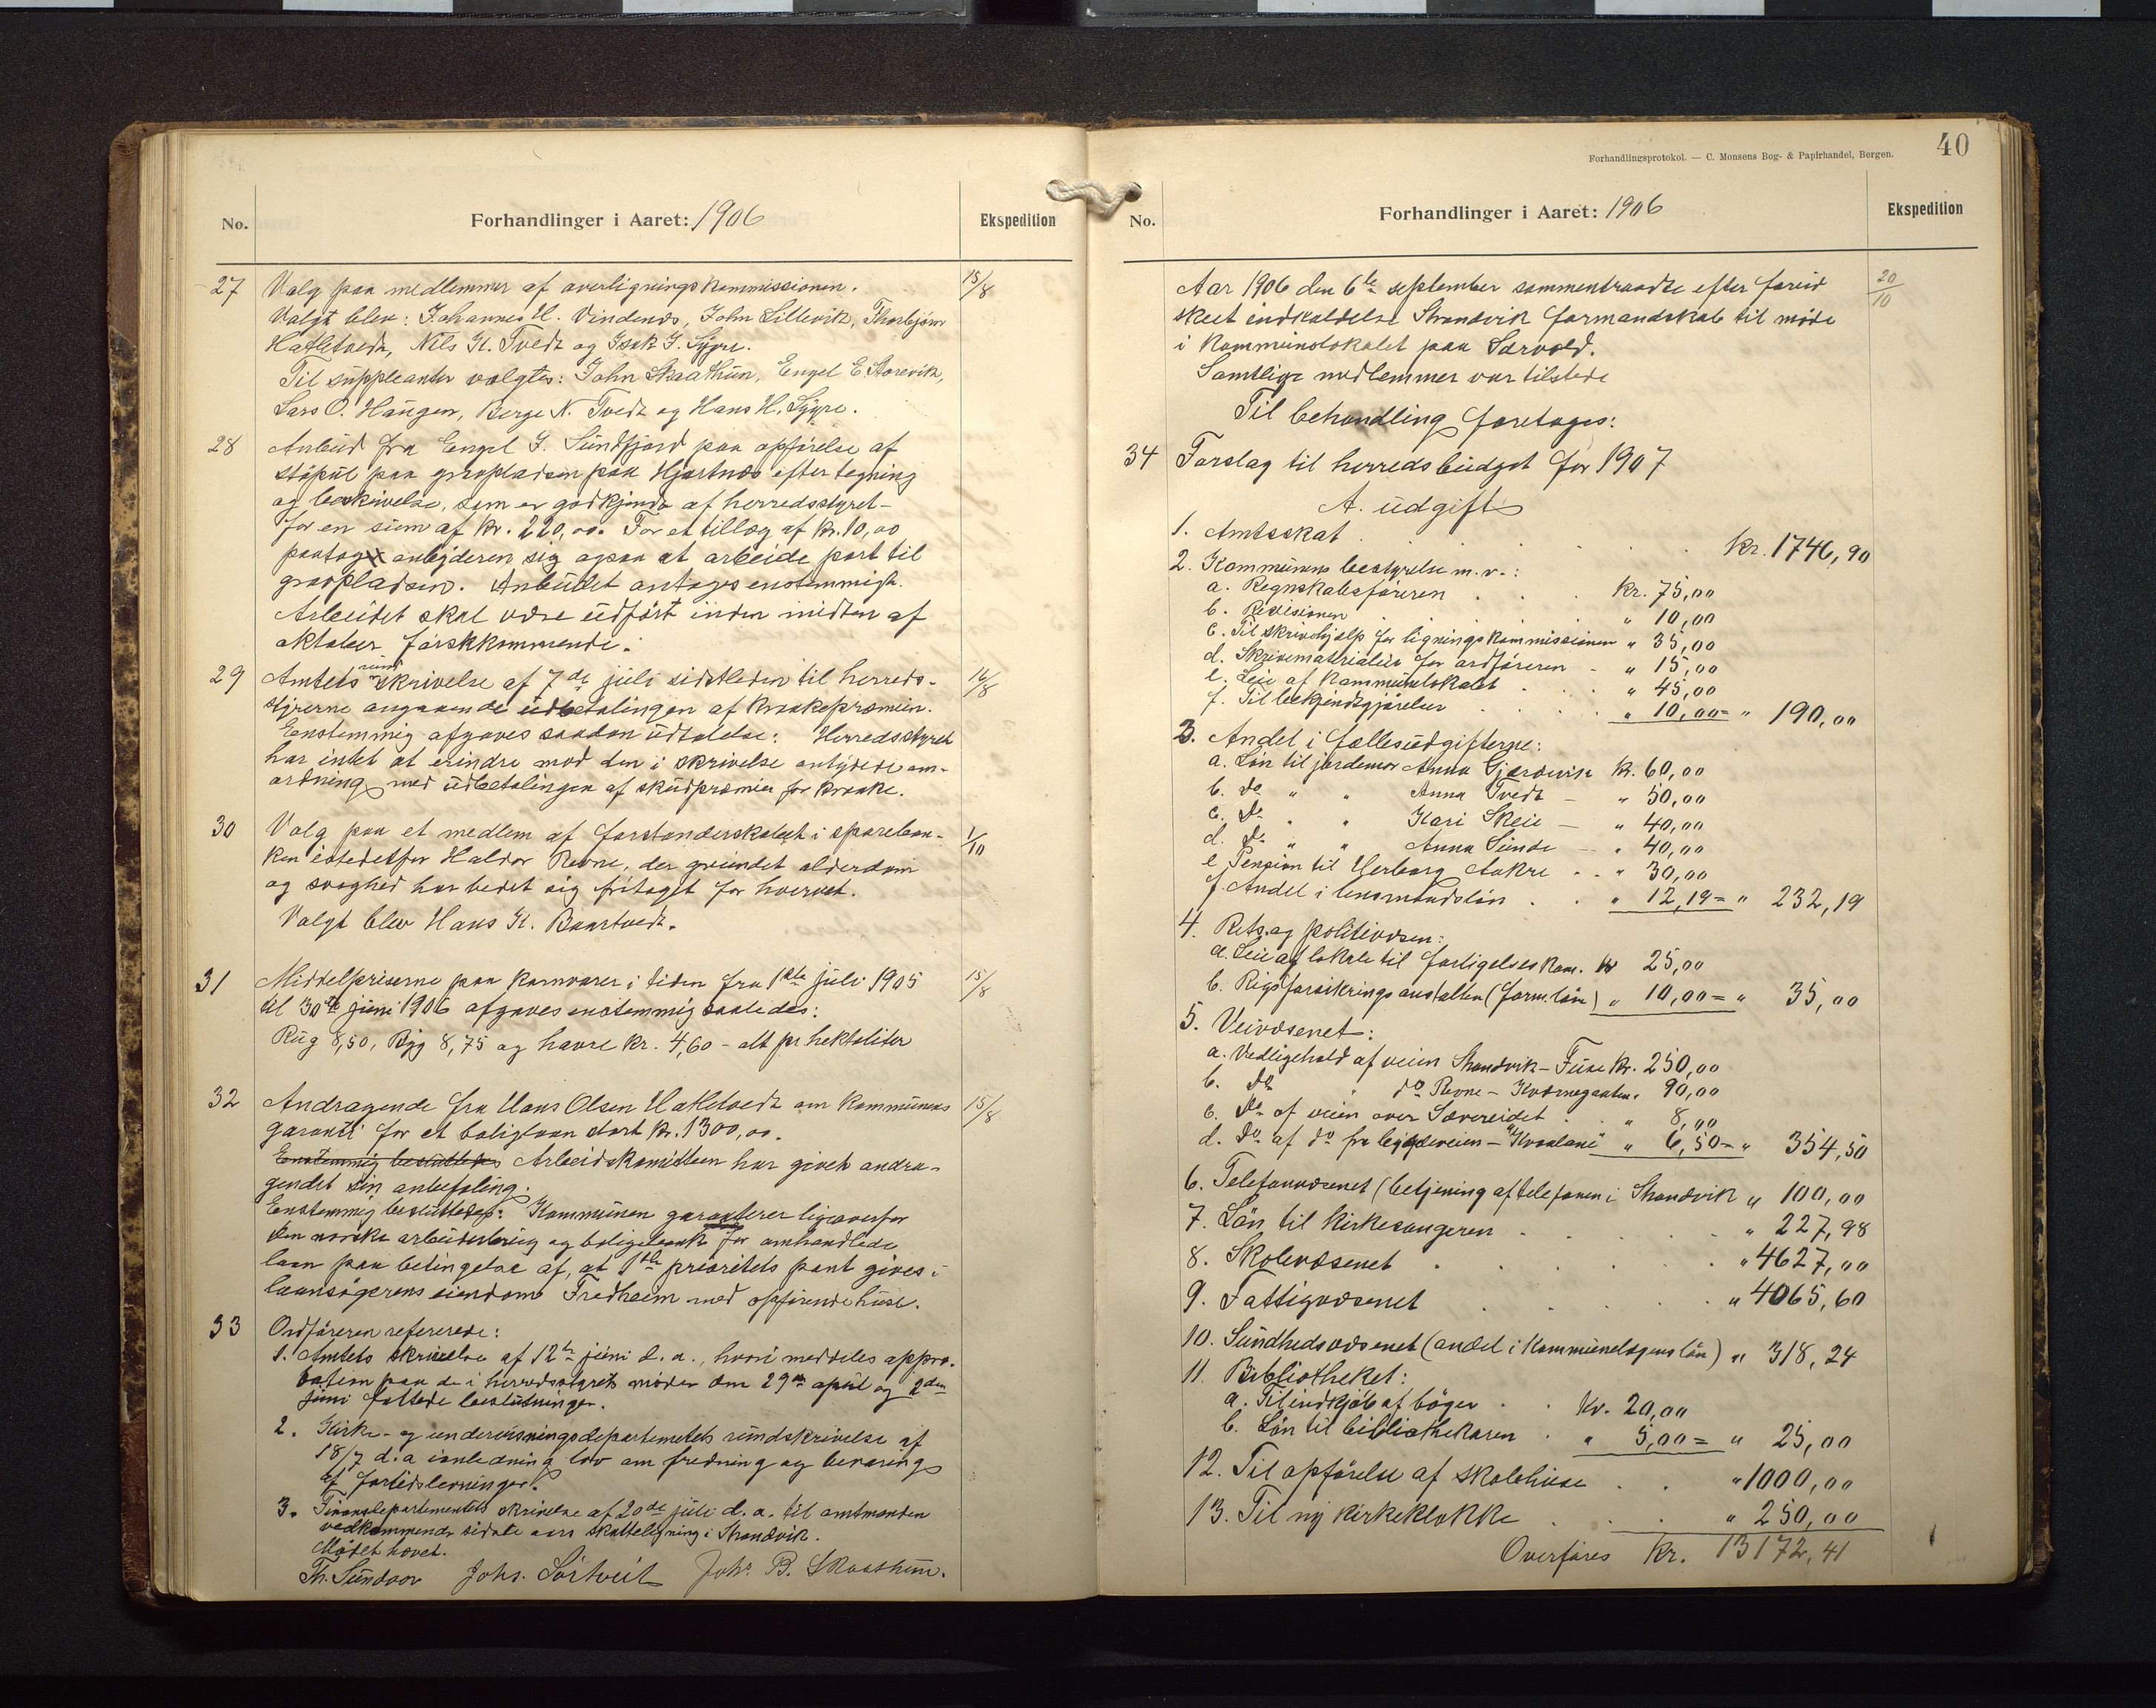 No.
Forhandlinger i Aaret: 1906
Ekspedition
27 Valg paa medlemmer af overligningskommissionen. 15/8
Valgt blev: Johannes H. Vindenes, John Lillevik, Thorbjørn
Hatletvedt, Nils K. Tvedt og Isak J. Sypre.
Til suppleanter valgtes: John Skaathun, Engel E. Storevik,
Lars O. Haugen, Berge N. Tvedt og Hans H. Sypre.
28 Anbud fra Engel J. Sundfjord paa opførelse af
støpul paa gravpladsen paa Hjartnæs efter tegning
og beskrivelse, som er godkjendt af herredsstyret -
for en sum af kr. 220,00. For et tillæg af kr. 10,00
paatog anbyderen sig ogsaa at arbeide port til
gravpladsen. Anbudet antoges enstemmigt.
Arbeidet skal være udført inden midten af
oktober førstkkommende.
29 Amtets rundskrivelse af 7de juli sidstleden til herreds- 16/8
styrerne angaaende udbetalingen af kraakepræmien.
Enstemmig afgaves saadan udtalelse: Herredsstyret
har intet at erindre mod den i skrivelse antydede om-
ordning med udbetalingen af skudpræmier for kraake.
30 Valg paa et medlem af forstanderskabet i spareban- 1/10
ken istedetfor Haldor Revne, der grundet alderdom
og svaghed har bedet sig fritaget for hvervet.
Valgt blev Hans K. Baartvedt.
31 Middelpriserne paa kornvarer i tiden fra 1ste juli 1905 15/8
til 30te juni 1906 afgaves enstemmig saaledes:
Rug 8,50, Byg 8,75 og havre kr. 4,60 - alt pr. hektoliter
32 Andragende fra Hans Olsen Hatletvedt om kommunens 15/8
garanti for et boliglaan stort kr. 1300,00.
Enstemmig besluttedes Arbeidskomitteen har givet andra-
gendet sin anbefaling.
Enstemmig besluttedes: Kommunen garanterer ligeoverfor
den norske arbeiderbrug og boligbank for omhandlede
laan paa betingelse af, at 1ste prioritets pant gives i
laansøgerens eiendom Fredheim med opførende huse.
33 Ordføreren refererede:
1. Amtets skrivelse af 12te juni d. a., hvori meddeles appro-
bation paa de i herredsstyrets møder den 29de april og 2den
juni fattede beslutninger.
2. Kirke- og undervisningsdepartementets rundskrivelse af
18/7 d. a. i anledning lov om fredning og bevaring
af fortidslevninger.
3. Finansdepartementets skrivelse af 20de juli d. a. til amtmanden
vedkommende sidste aars skatteligning i Strandvik.
Mødet hævet.
Th. Sundvor Johs. Sørtveit Johs B. Skaathun.
Forhandlingsprotokol. — C. Monsens Bog- & Papirhandel, Bergen.
40
No.
Forhandlinger i Aaret: 1906
Ekspedition
Aar 1906 den 6te september sammentraadte efter forud 20/10
skeet indkaldelse Strandvik formandskab til møde
i kommunelokalet paa Særvold.
Samtlige medlemmer var tilstede
Til behandling foretages:
34 Forslag til herredsbudget for 1907
A. udgift
1. Amtsskat . . . . . kr. 1746,90
2. Kommunens bestyrelse m. v.:
a. Regnskabsføreren . . . kr. 75,00
b. Revisionen . . . . " 10,00
c. Til skrivehjælp for ligningskommissionen " 35,00
d. Skrivematerialier for ordføreren - " 15,00
e. Leie af kommunelokalet . . . " 45,00
f. Til bekjendtgjørelser . . . . " 10,00 = " 190,00
3. Andel i fællesudgifterne:
a. Løn til jordemor Anna Gjærdevik kr. 60,00
b. do " " Anna Tvedt — " 50,00
c. do " " Kari Skeie — " 40,00
d. do " " Anna Sunde — " 40,00
e. Pension til Herborg Aakre . . " 30,00
f. Andel i lensmandsløn . . " 12,19 = " 232,19
4. Rets- og politivæsen:
a. Leie af lokale til forligelseskom. kr 25,00
b. Rigsforsikringsanstalten (form. løn) " 10,00 = " 35,00
5. Veivæsenet:
a. Vedligehold af veien Strandvik - Fuse kr. 250,00
b. do do Revne - Kværnegaaten " 90,00
c. do af veien over Sævereidet . . " 8,00
d. do af do fra bygdeveien - "Kvaalane" " 6,50 = " 354,50
6. Telefonvæsenet (betjening af telefonen i Strandvik " 100,00
7. Løn til kirkesangeren . . . . . " 227,98
8. Skolevæsenet . . . . . . " 4627,00
9. Fattigvæsenet . . . . . " 4065,60
10. Sundhedsvæsenet (andel i kommunelægens løn) " 318,24
11. Bibliotheket:
a. Til indkjøb af bøger . . kr. 20,00
b. Løn til bibliothekaren . " 5,00 = " 25,00
12. Til opførelse af skolehuse . . " 1000,00
13. Til ny kirkeklokke . . . " 250,00
Overføres kr. 13172,41